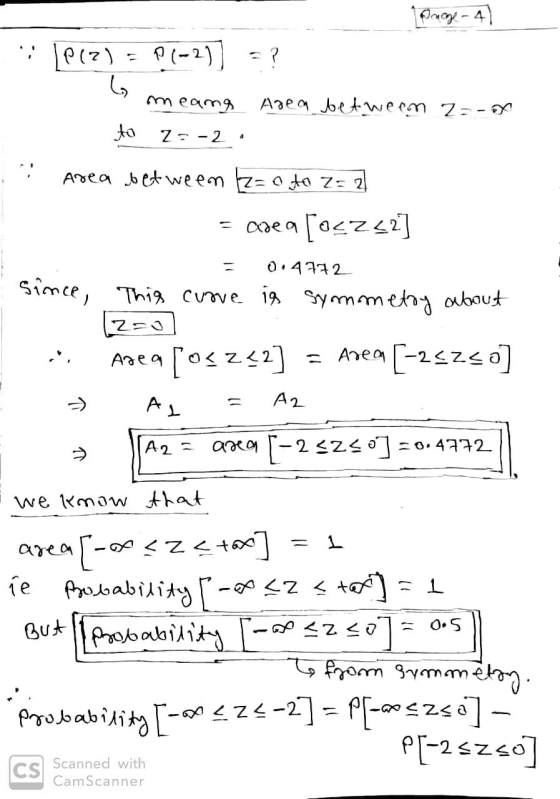 Page-4
∵ P(z) = P(-2) = ?
↳ means Area between z=-∞
to z=-2.
∵ Area between z=0 to z=2
= area [0≤z≤2]
= 0.4772
Since, This curve is symmetry about
z=0
∴ Area [0≤z≤2] = Area [-2≤z≤0]
⇒ A1 = A2
⇒ A2 = area [-2≤z≤0] = 0.4772
we know that
area [-∞≤z≤+∞] = 1
ie Probability [-∞≤z≤+∞] = 1
But Probability [-∞≤z≤0] = 0.5
↳ from symmetry.
∴ Probability [-∞≤z≤-2] = P[-∞≤z≤0] -
P[-2≤z≤0]
CS Scanned with
CamScanner